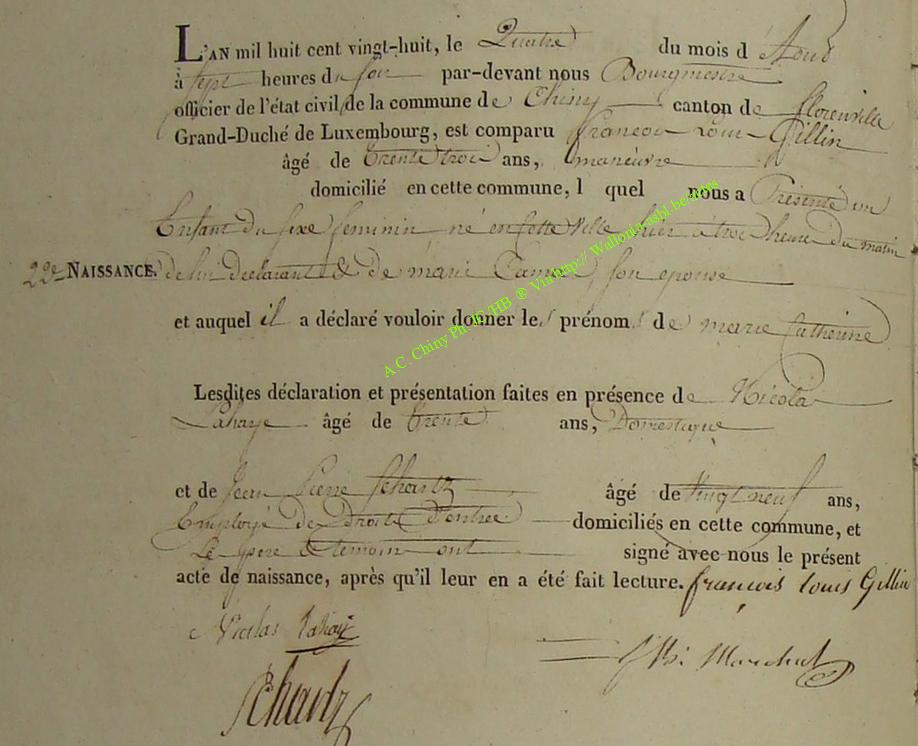 L'AN mil huit cent vingt-huit, le Quatre du mois d'Aout
à sept heures du soir par-devant nous Bourgmestre
officier de l'état civil de la commune de Chiny canton de florenville
Grand-Duché de Luxembourg, est comparu francois Louis Gillin
âgé de trente trois ans, maneuvre
domicilié en cette commune, l quel nous a Présenté un
Enfant du sexe feminin né en cette ville hier à trois heure du matin
22e NAISSANCE. de lui declarant & de marie son epouse
et auquel il a déclaré vouloir donner les prénoms de marie Catherine
Lesdites déclaration et présentation faites en présence de Nicolas
Lahaye âgé de trente ans, Domestique
et de Jean Pierre Schartz âgé de vingt neuf ans,
Employé de Droits D'entree domiciliés en cette commune, et
Le pere & temoin ont signé avec nous le présent
acte de naissance, après qu'il leur en a été fait lecture. francois louis Gillin
Nicolas Lahaye
Schartz
A C Chiny Ph JC/HB ® Via http:// Wallonia asbl.be-dons